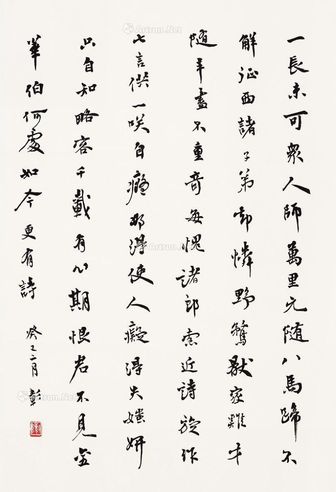 一長未可衆人師萬里元随八馬蹄不
解征西諸子弟卻憐野鶩厭家雞才
随年盡不重奇每愧諸郎索近詩旋作
七言供一笑自癡那得使人癡得失媸妍
只自知略容千載有心期恨君不見金
華伯何處如今更有詩 癸巳二月